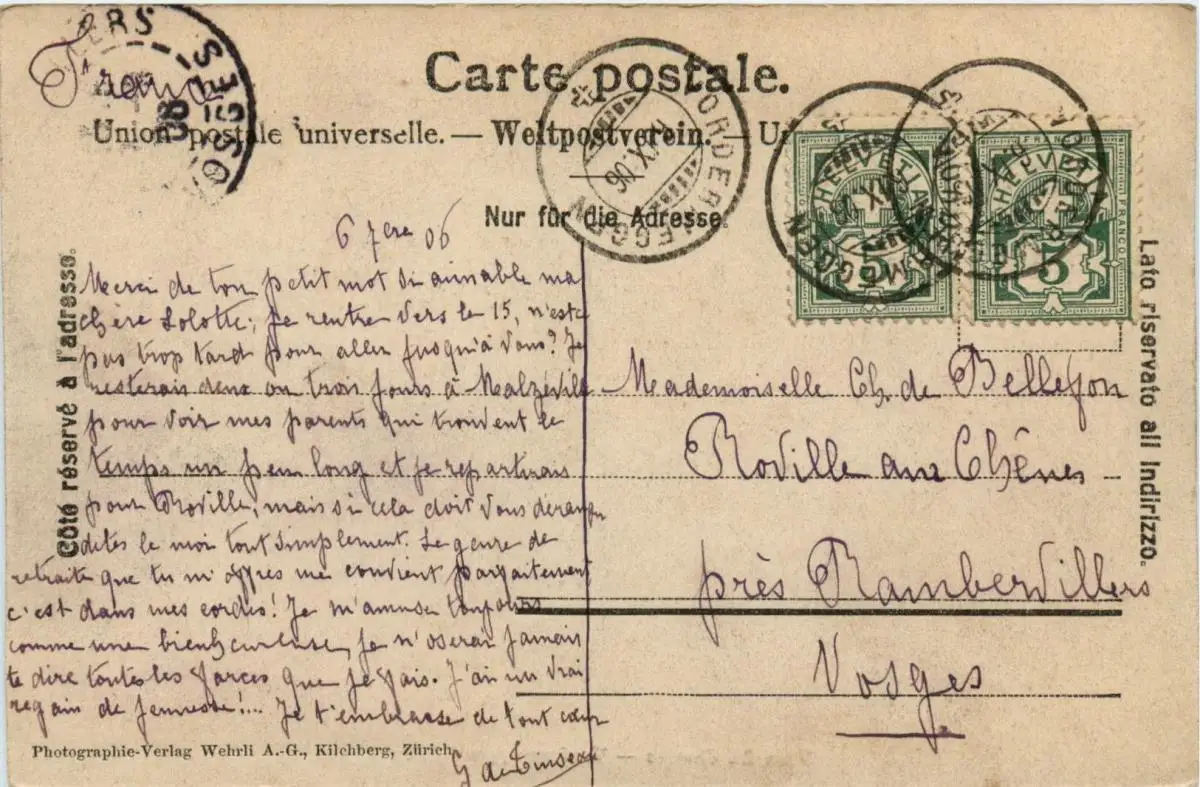 France
VOSGES
Carte postale.
Union postale universelle. — Weltpostverein. — U
VORDERMEGGEN
Nur für die Adresse.
HELVETIA
FRANCO
5
HELVETIA
FRANCO
5
Côté réservé à l'adresse.
Lato riservato all indirizzo.
6 7ere 06
Merci de ton petit mot si aimable ma
chère Lolotte; je rentre vers le 15, n'est
pas trop tard pour aller jusqu'à vous? Je
resterais deux ou trois jours à Malzéville
pour voir mes parents qui trouvent le
temps un peu long et je repartirais
pour Roville, mais si cela doit vous déranger
dites le moi tout simplement. Le genre de
retraite que tu m'offres me convient parfaitement
c'est dans mes cordes! Je m'amuse toujours
comme une bienheureuse, je n'oserai jamais
te dire toutes les farces que je fais. J'ai un vrai
regain de jeunesse!... Je t'embrasse de tout cœur
G de Tinseau
Mademoiselle Ch. de Bellefon
Roville aux Chênes
près Rambervillers
Vosges
Photographie-Verlag Wehrli A.-G., Kilchberg, Zürich